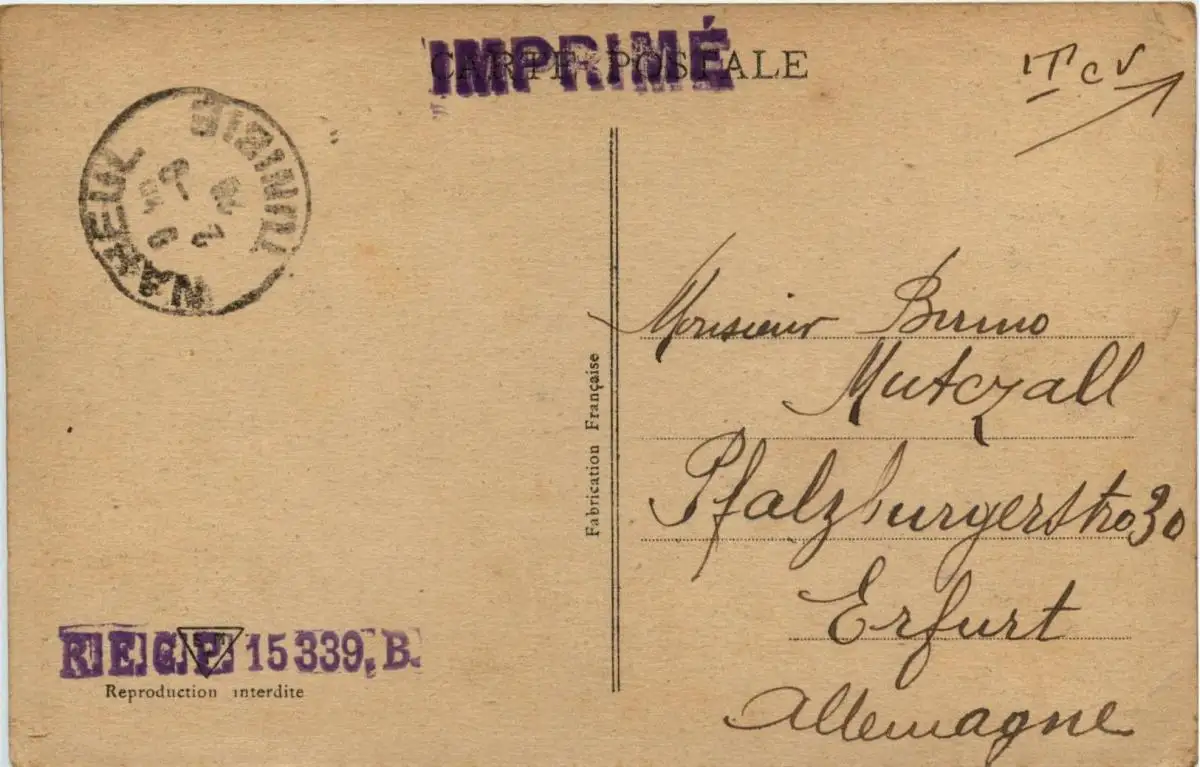 CARTE POSTALE
IMPRIMÉ
TCV
NABEUL TUNISIE
Monsieur Bruno
Mutczall
Pfalzburgerstr. 30
Erfurt
Allemagne
Fabrication Française
R.E.C.P. 15 339, B.
Reproduction interdite